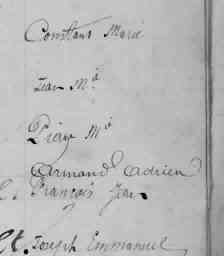 Constans Marie
Jean Mª
Pierre Mª
Armand Adrien
François Jean
Et. Joseph Emmanuel